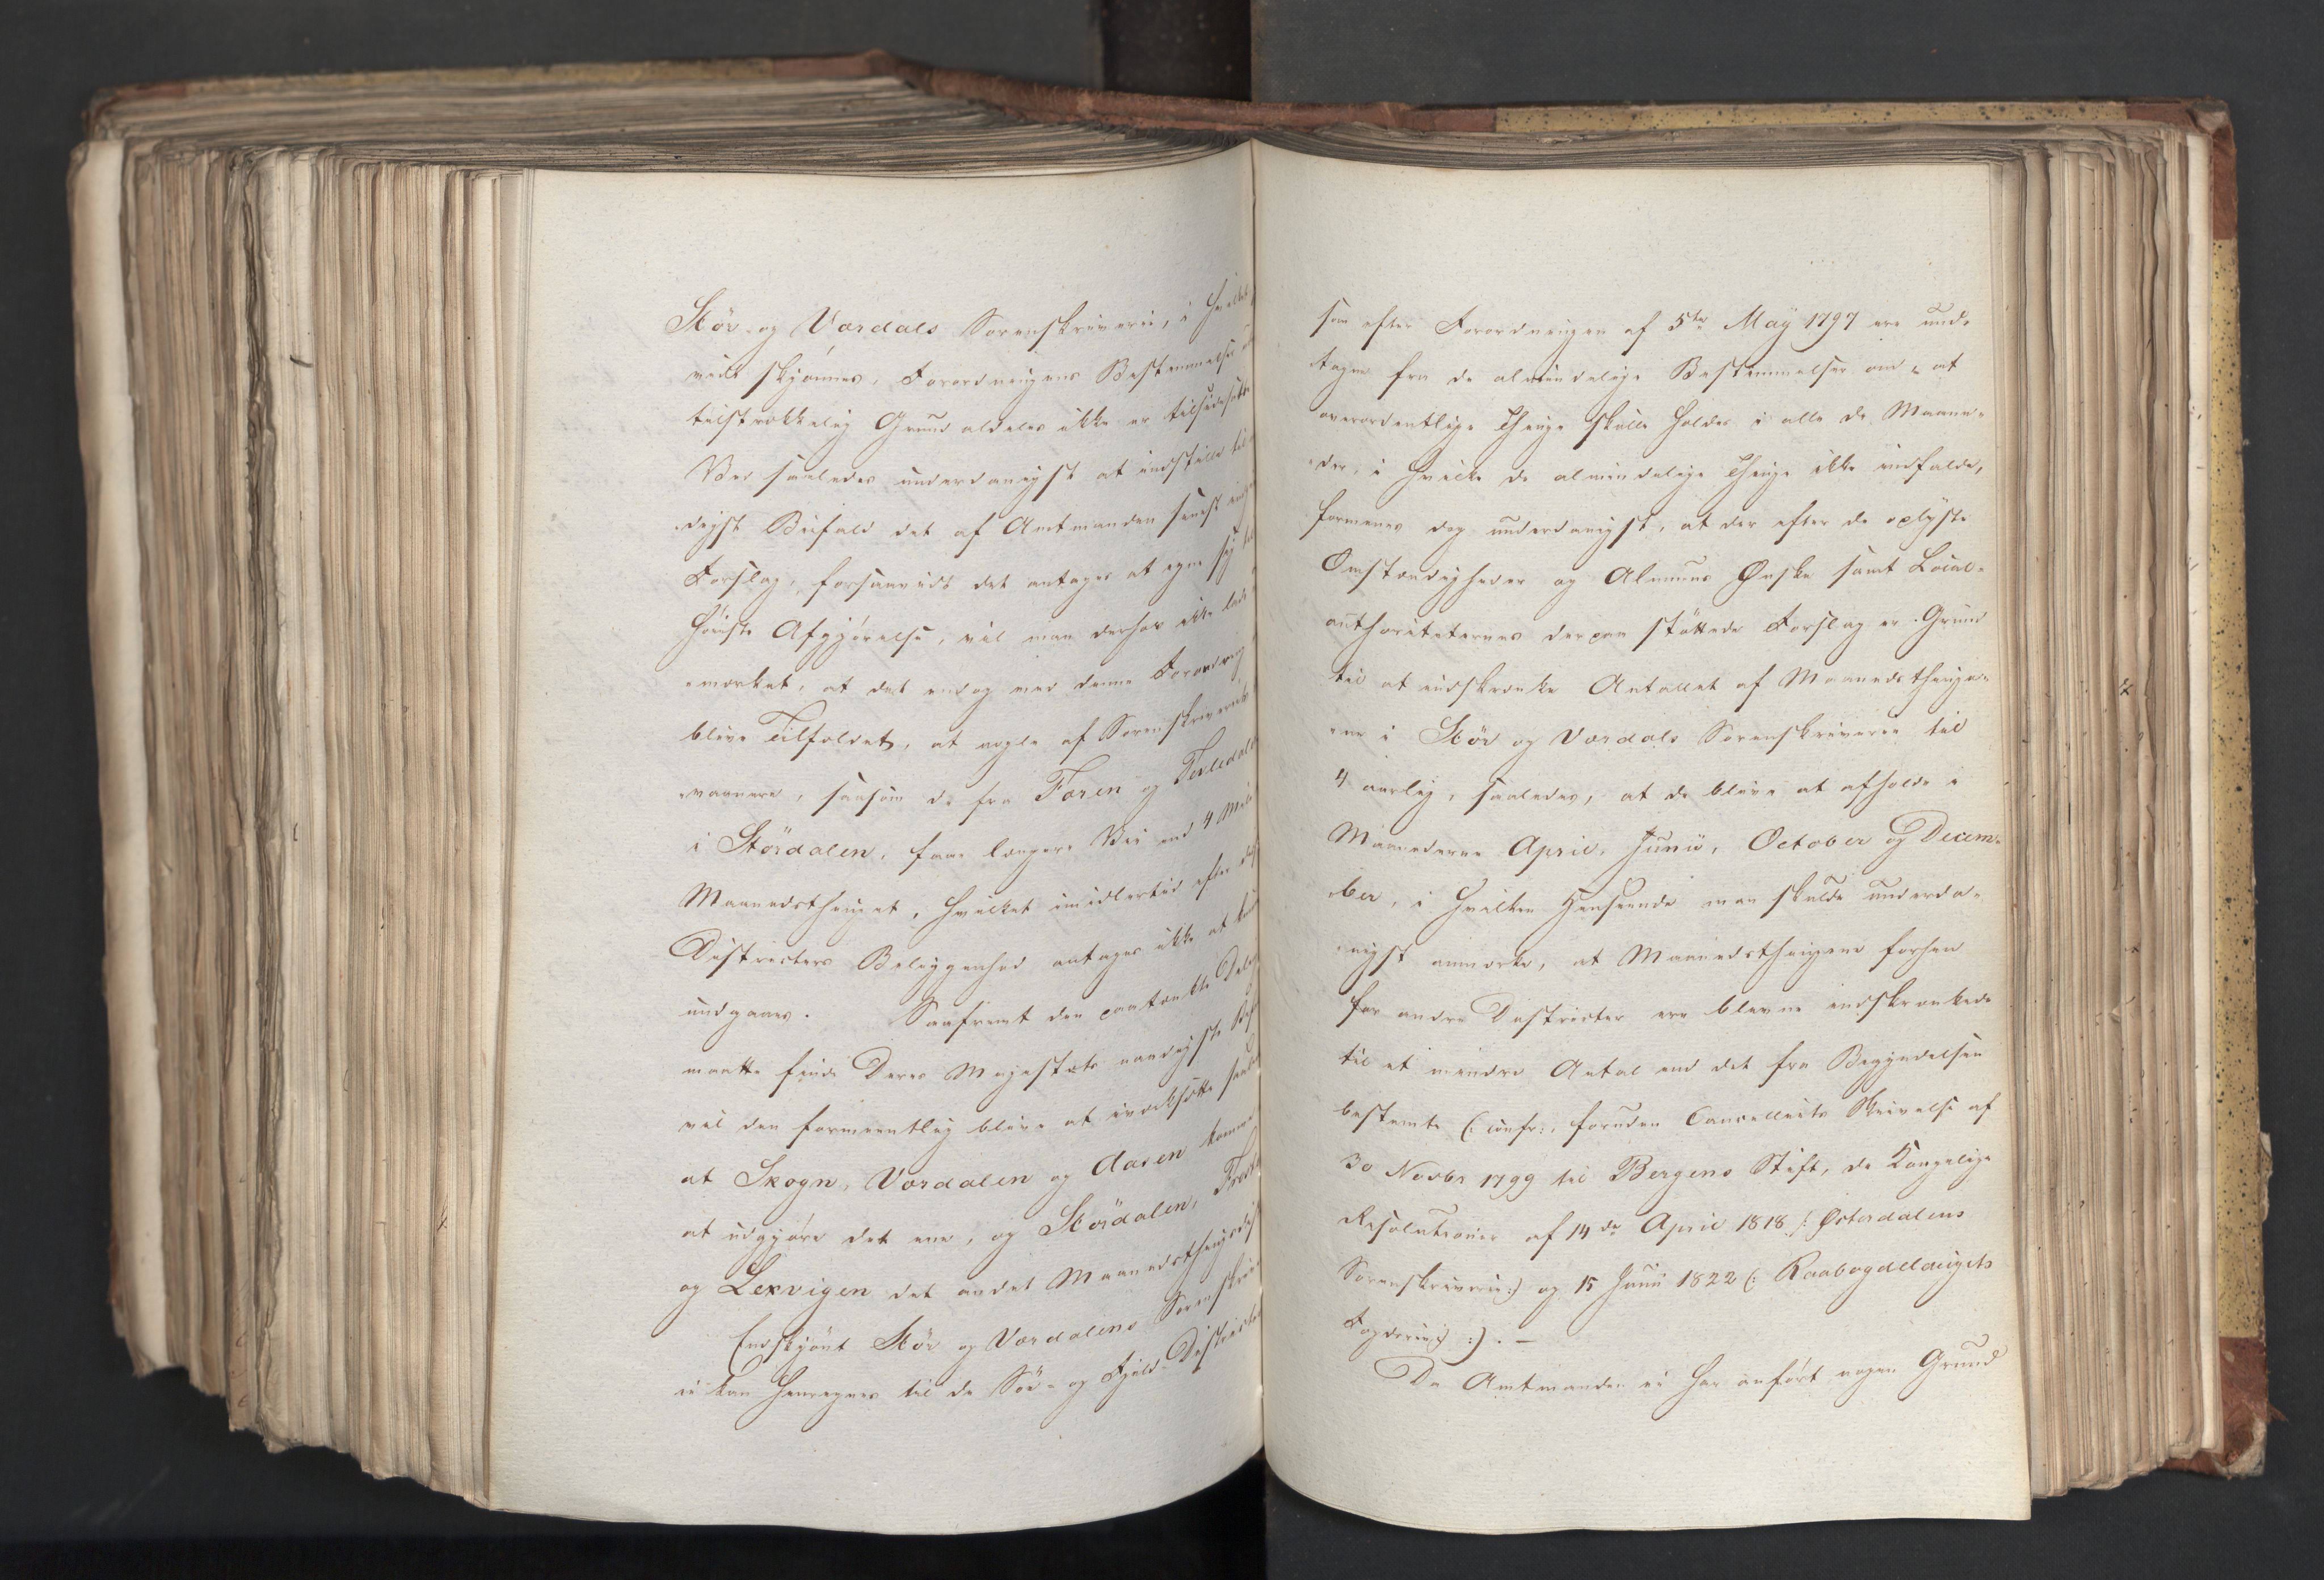 Stör- og Værdals Sorenskriverie, i hvilket
vidt skjønnes, Forordningens Bestemmelse
tilstrækkelig Grund aldeles ikke er tilsidesatte
Ved saaledes underdanigst at indstille til
-digst Bifald det af Amtmanden senest
Forslag, forsaavidt det antages at egne sig til
høieste Afgjørelse, vil man derhos ikke lade
-mærket, at det endog med denne Forandring
blive Tilfældet, at nogle af Sorenskriveriets
-vaanere, saasom de fra Færen og
i Stördalen, faae længere Vei end 4 Mile
Maanedsthinget, hvilket imidlertid efter
Districtets Beliggenhed antages ikke at kunde
undgaaes. Saafremt den paatænkte
maatte finde Deres Majestæts naadigste
vil den formeentlig blive at iværksætte
at Skogn, Værdalen og Aasen komme
at udgjøre det ene, og Stördalen, Frosten
og Lexvigen det andet
Endskjönt Stör og Værdalens
ei kan henregnes til de Söe- og Fjeld-Districter
som efter Forordningen af 5te May 1797 ere und-
tagne fra de almindelige Bestemmelser om, at
overordentlige Thinge skulle holdes i alle de Maane-
-der, i hvilke de almindelige Thinge ikke indfalde,
formenes dog underdanigst, at der efter de oplyste
Omstændigheder og Almuens Ønske samt Local-
authoriteternes derpaa støttede Forslag er Grund
til at indskrænke Antallet af Maanedsthinge-
-ne i Stör og Værdals Sorenskriverie til
4 aarlig, saaledes, at de blive at afholde i
Maanederne April, Junii, October og Decem-
-ber, i hvilken Henseende man skulde underda-
-nigst anmærke, at Maanedsthingene forhen
for andre Districter ere blevne indskrænkede
til et mindre Antal end det fra Begyndelsen
bestemte (: confr:, foruden Cancelliets Skrivelse af
30 Novbr 1799 til Bergens Stift, de Kongelige
Resolutioner af 14de April 1818 /: Østerdalens
Sorenskriverie:) og 15 Junii 1822 (: Raabygdelaugets
Fogderie:) :). —
Da Amtmanden ei har anført nogen Grund